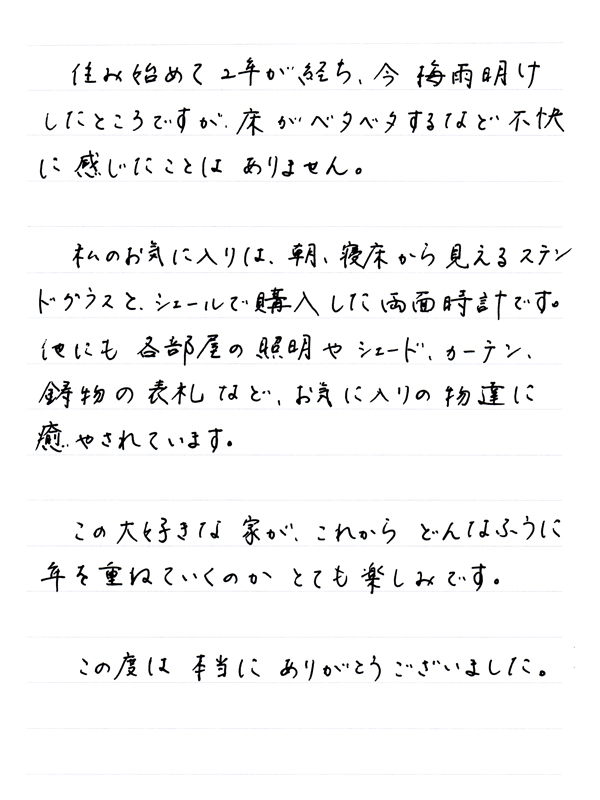 住み始めて2年が経ち、今 梅雨明け
したところですが、床がベタベタするなど不快
に感じたことはありません。
私のお気に入りは、朝、寝床から見えるステン
ドグラスと、シェールで購入した両面時計です。
他にも 各部屋の照明やシェード、カーテン、
鋳物の表札など、お気に入りの物達に
癒やされています。
この大好きな家が、これから どんなふうに
年を重ねていくのか とても楽しみです。
この度は 本当に ありがとうございました。